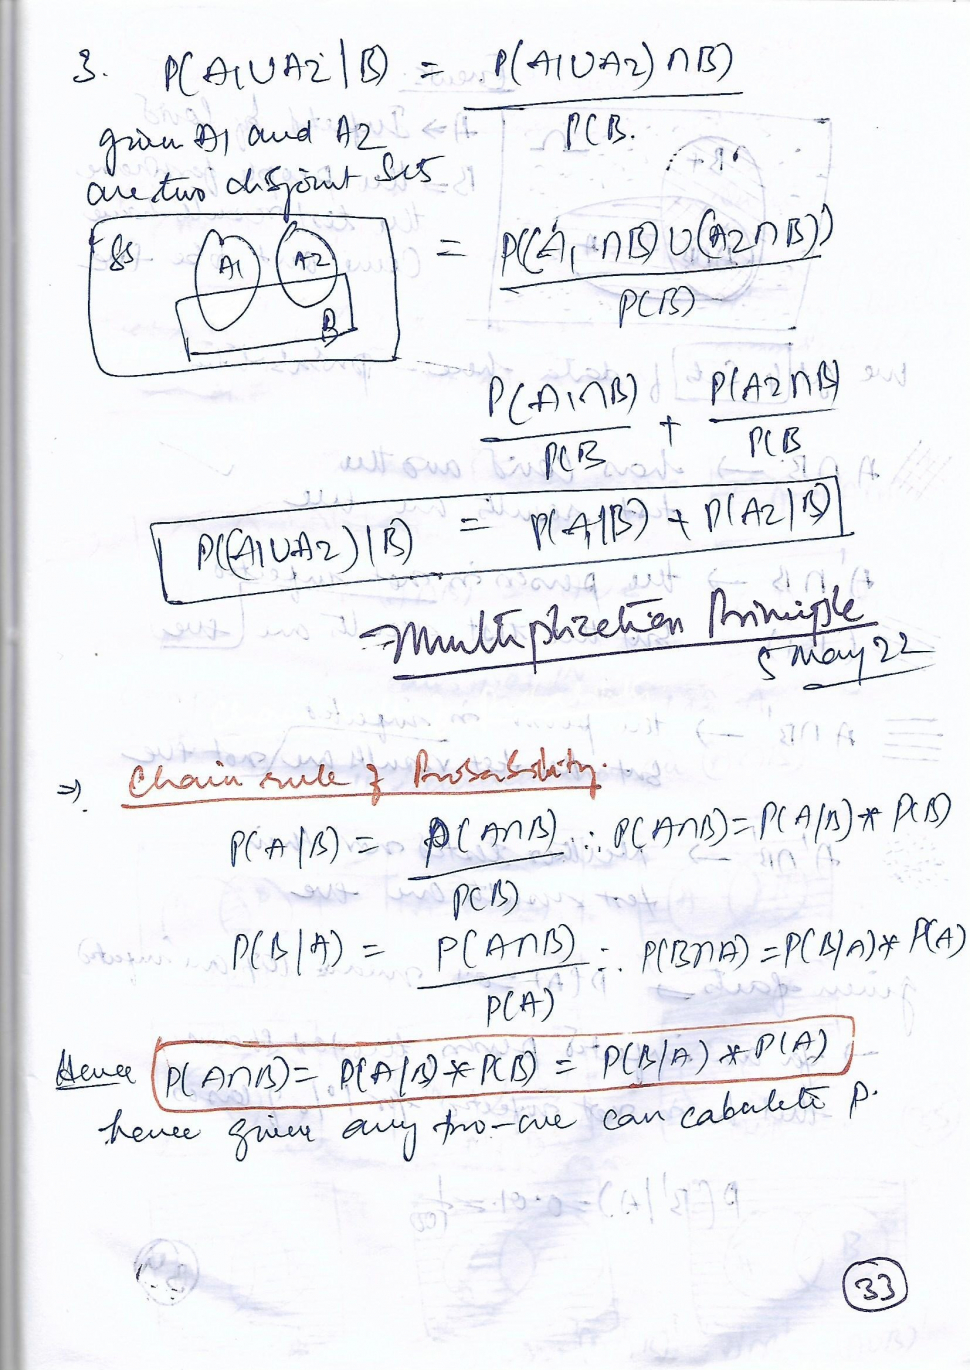 3. P(A1∪A2|B) = P(A1∪A2)∩B)
P(B.
given A1 and A2
are two disjoint Sets
SS A1 A2 B
= P((A1∩B)∪(A2∩B))
P(B)
P(A1∩B) + P(A2∩B)
P(B P(B
P((A1∪A2)|B) = P(A1|B) + P(A2|B)
Multiplication Principle
5 May 22
⇒ Chain rule of Probability.
P(A|B) = P(A∩B) ∴ P(A∩B) = P(A|B) * P(B)
P(B)
P(B|A) = P(A∩B) ∴ P(B∩A) = P(B|A) * P(A)
P(A)
Hence P(A∩B) = P(A|B) * P(B) = P(B|A) * P(A)
hence given any two can calculate P.
33